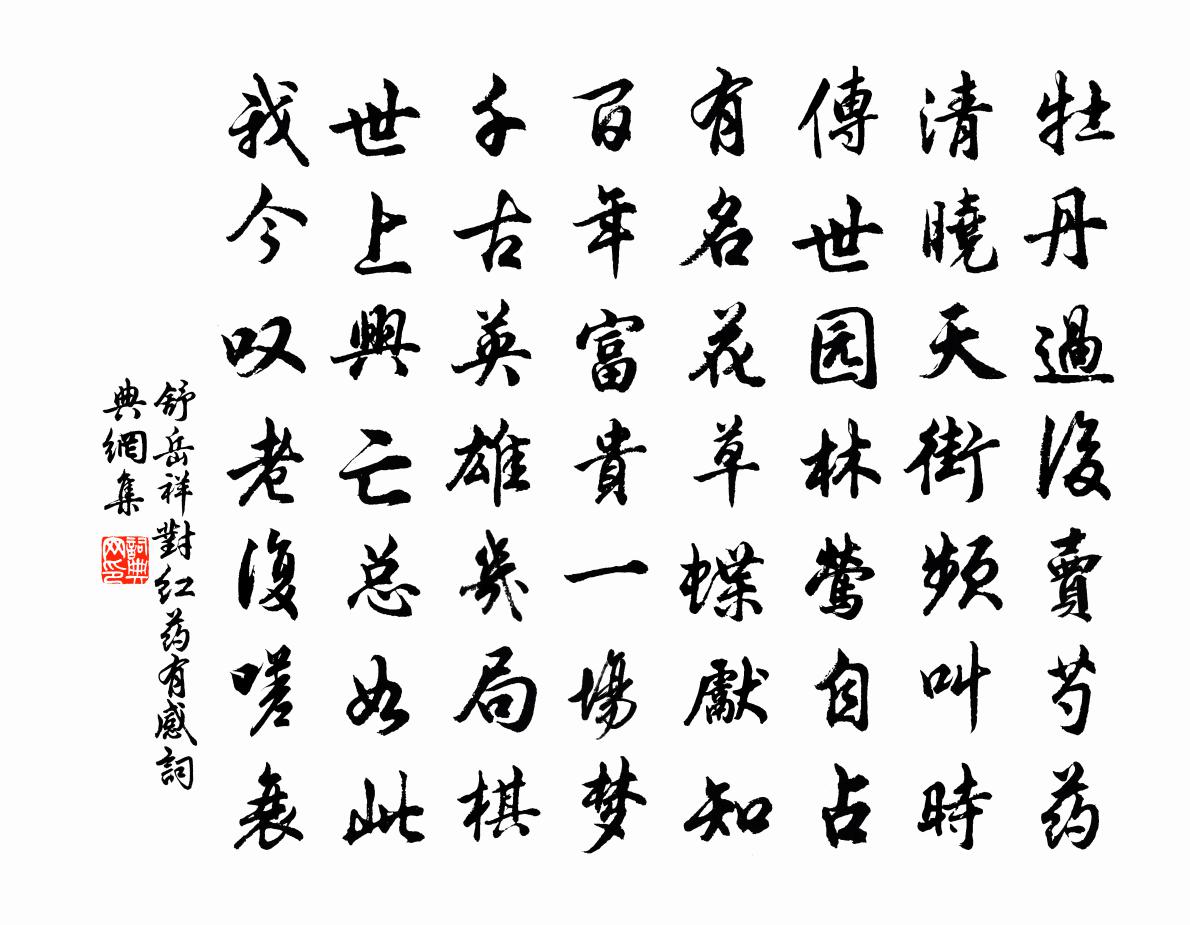 牡丹過後賣芍药
清曉天街頻叫時
傳世园林莺自占
有名花草蝶獻知
百年富貴一場梦
千古英雄幾局棋
世上興亡总如此
我今叹老復嗟衰
舒岳祥對红药有感詞
典網集
詞典
网印